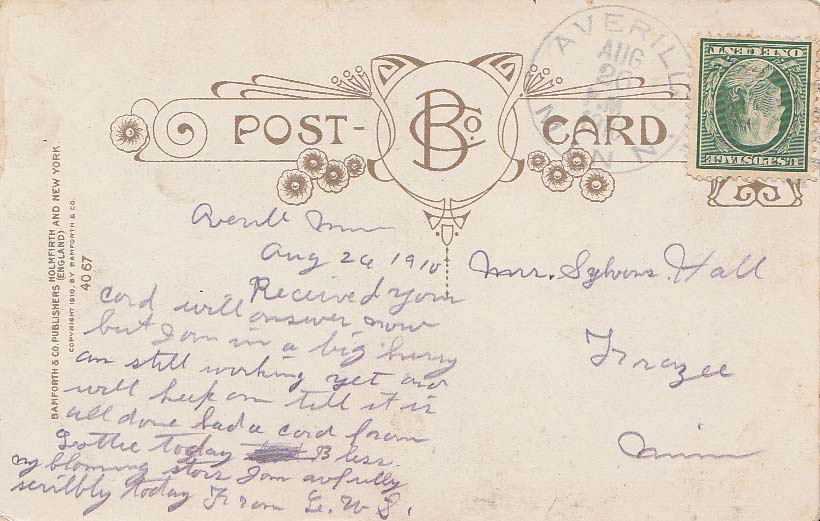 POST-CARD
BCo
AVERILL
MINN
AUG
26
ONE CENT
U.S. POSTAGE
BAMFORTH & CO. PUBLISHERS HOLMFIRTH AND NEW YORK.
(ENGLAND)
COPYRIGHT 1910, BY BAMFORTH & CO.
4067
Averill Minn
Aug 26 1910
Received your
card will answer now
but I am in a big hurry
am still working yet and
will keep on till it is
all done had a card from
Lottie today Bless
my blooming stars I am awfully
scribbly today From
Mrr. Hall
Frazee
Minn